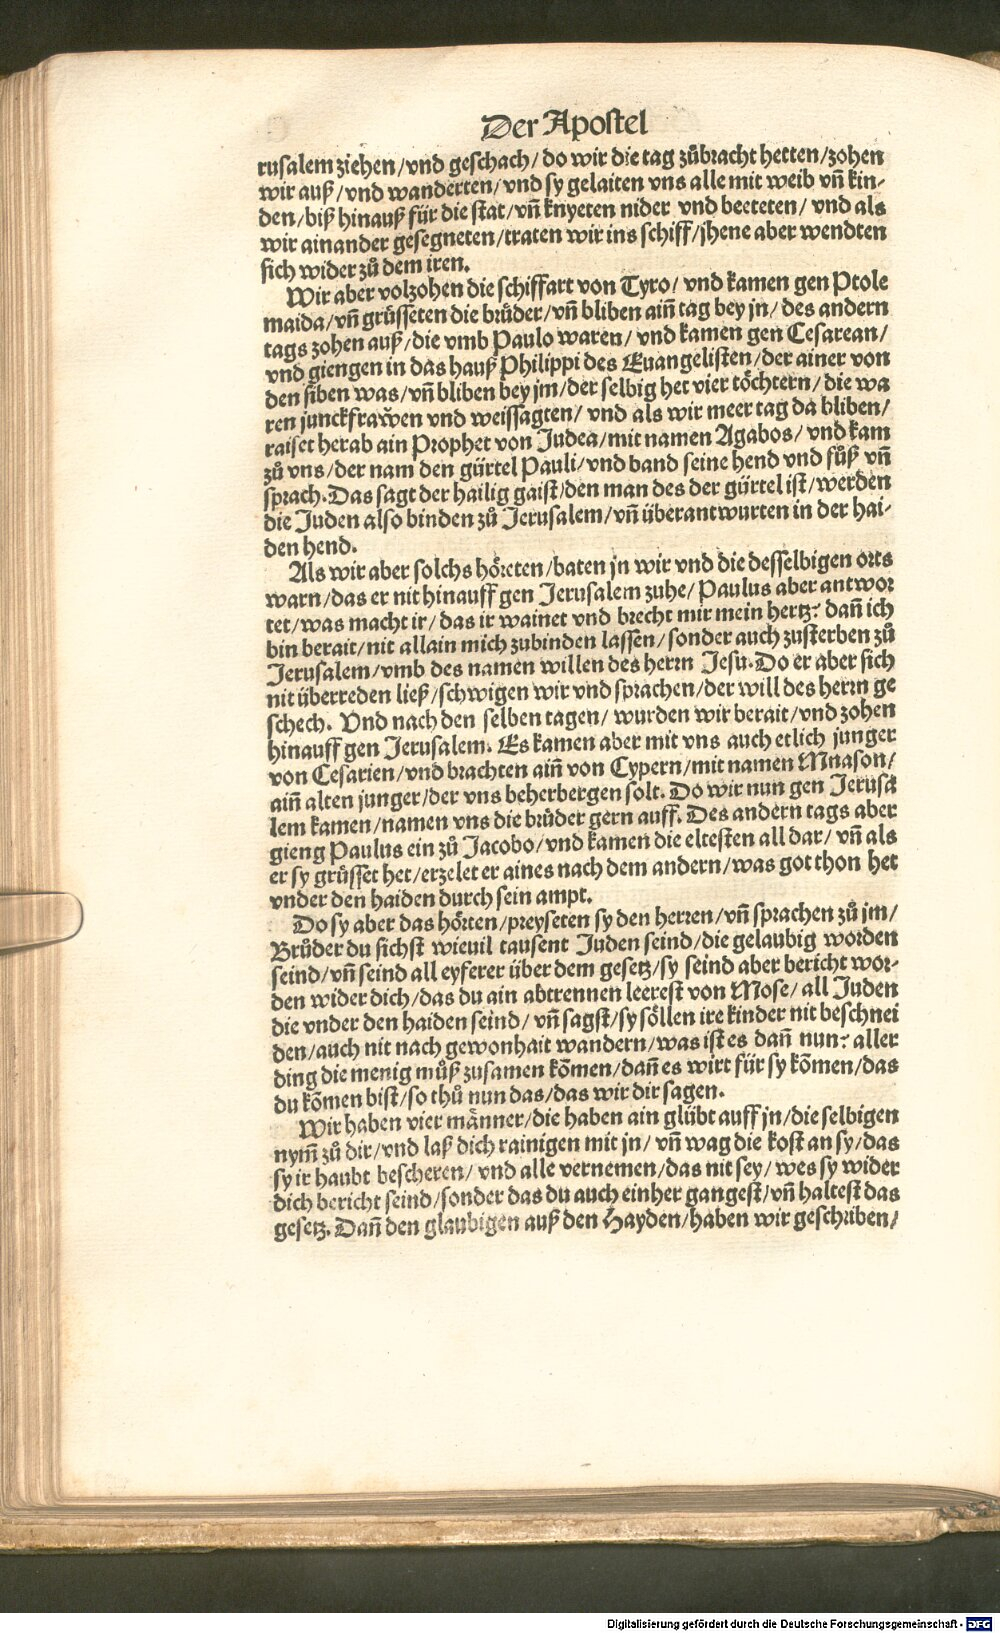 Der Apostel
rusalem ziehen/vnd geschach/do wir die tag zůbracht hetten/zohen
wir auß/vnd wanderten/vnd sy gelaiten vns alle mit weib vñ kin-
den/biß hinauß für die stat/vñ knyeten nider vnd beeteten/vnd als
wir ainander gesegneten/traten wir ins schiff/jhene aber wendten
sich wider zů dem iren.
Wir aber volzohen die schiffart von Tyro/vnd kamen gen Ptole
maida/vñ grůsseten die brůder/vñ bliben aiñ tag bey jn/des andern
tags zohen auß/die vmb Paulo waren/vnd kamen gen Cesarean/
vnd giengen in das hauß Philippi des Euangelisten/der ainer von
den siben was/vñ bliben bey jm/der selbig het vier töchtern/die wa
ren junckfrawen vnd weissagten/vnd als wir meer tag da bliben/
raiset herab ain Prophet von Judea/mit namen Agabos/vnd kam
zů vns/der nam den gürtel Pauli/vnd band seine hend vnd fůß vñ
sprach. Das sagt der hailig gaist/den man des der gürtel ist/werden
die Juden also binden zů Jerusalem/vñ überantwurten in der hai-
den hend.
Als wir aber solchs höreten/baten jn wir vnd die desselbigen orts
warn/das er nit hinauff gen Jerusalem zuhe/Paulus aber antwor
tet/was macht ir/das ir wainet vnd brecht mir mein hertz? dañ ich
bin berait/nit allain mich zubinden lassen/sonder auch zusterben zů
Jerusalem/vmb des namen willen des herrn Jesu. Do er aber sich
nit überreden ließ/schwigen wir vnd sprachen/der will des herrn ge
schech. Vnd nach den selben tagen/wurden wir berait/vnd zohen
hinauff gen Jerusalem. Es kamen aber mit vns auch etlich junger
von Cesarien/vnd brachten aiñ von Cypern/mit namen Mnason/
aiñ alten junger/der vns beherbergen solt. Do wir nun gen Jerusa
lem kamen/namen vns die brůder gern auff. Des andern tags aber
gieng Paulus ein zů Jacobo/vnd kamen die eltesten all dar/vñ als
er sy grůsset het/erzelet er aines nach dem andern/was got thon het
vnder den haiden durch sein ampt.
Do sy aber das hörten/preyseten sy den herren/vñ sprachen zů jm/
Brůder du sichst wieuil tausent Juden seind/die gelaubig worden
seind/vñ seind all eyferer über dem gesetz/sy seind aber bericht wor-
den wider dich/das du ain abtrennen leerest von Mose/all Juden
die vnder den haiden seind/vñ sagst/sy söllen ire kinder nit beschnei
den/auch nit nach gewonhait wandern/was ist es dañ nun? aller
ding die menig můß zusamen kõmen/dañ es wirt für sy kõmen/das
du kõmen bist/so thů nun das/das wir dir sagen.
Wir haben vier männer/die haben ain glübt auff jn/die selbigen
nym̃ zů dir/vnd laß dich rainigen mit jn/vñ wag die kost an sy/das
sy ir haubt bescheren/vnd alle vernemen/das nit sey/wes sy wider
dich bericht seind/sonder das du auch einher gangest/vñ haltest das
gesetz. Dañ den glaubigen auß den Hayden/haben wir geschriben/
Digitalisierung gefördert durch die Deutsche Forschungsgemeinschaft - DFG